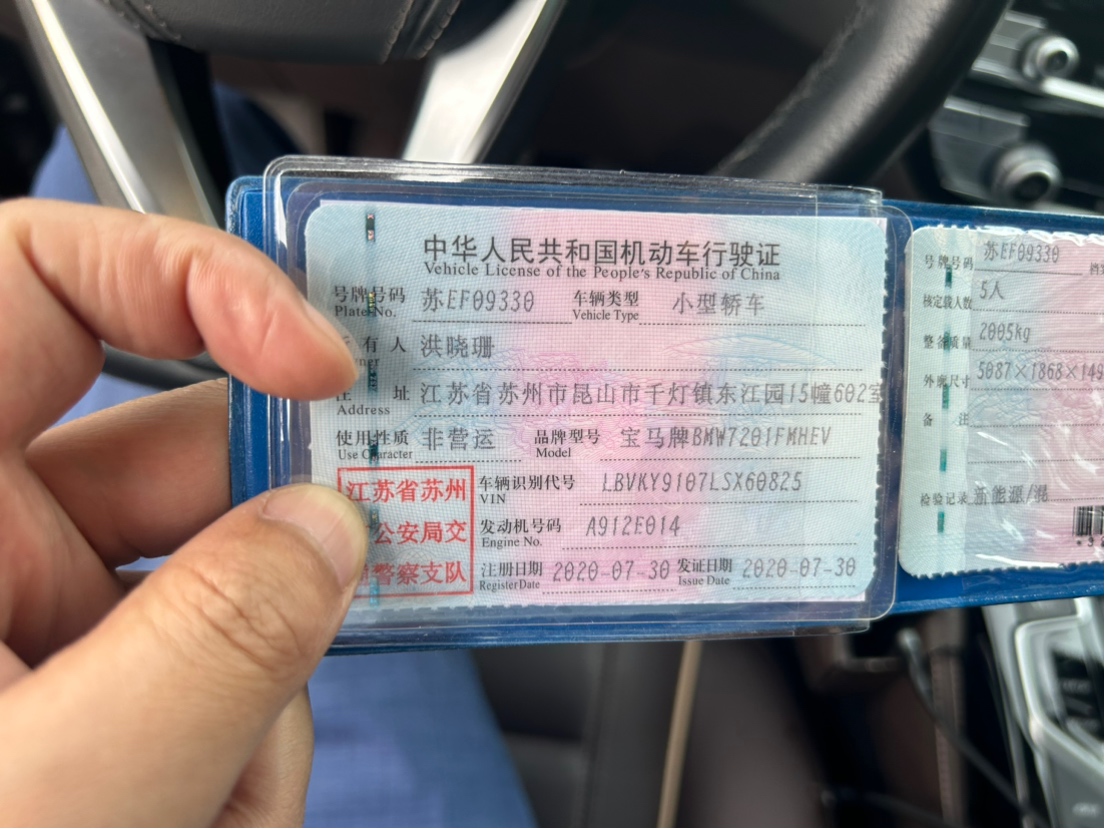 中华人民共和国机动车行驶证
Vehicle License of the People's Republic of China
号牌号码 苏EF09330 车辆类型 小型轿车
Plate No. Vehicle Type
有人 洪晓珊
址 江苏省苏州市昆山市千灯镇东江园15幢602室
Address
使用性质 非营运 品牌型号 宝马牌BMW7201FMHEV
Use Character Model
江苏省苏州
公安局交
警察支队
车辆识别代号 LBVKY9107LSX60825
VIN
发动机号码 A912E014
Engine No.
注册日期 2020-07-30 发证日期 2020-07-30
Register Date Issue Date
号牌号码 苏EF09330
核定载人数 5人
整备质量 2005kg
外廓尺寸 5087×1868×149
备注
检验记录 新能源/混